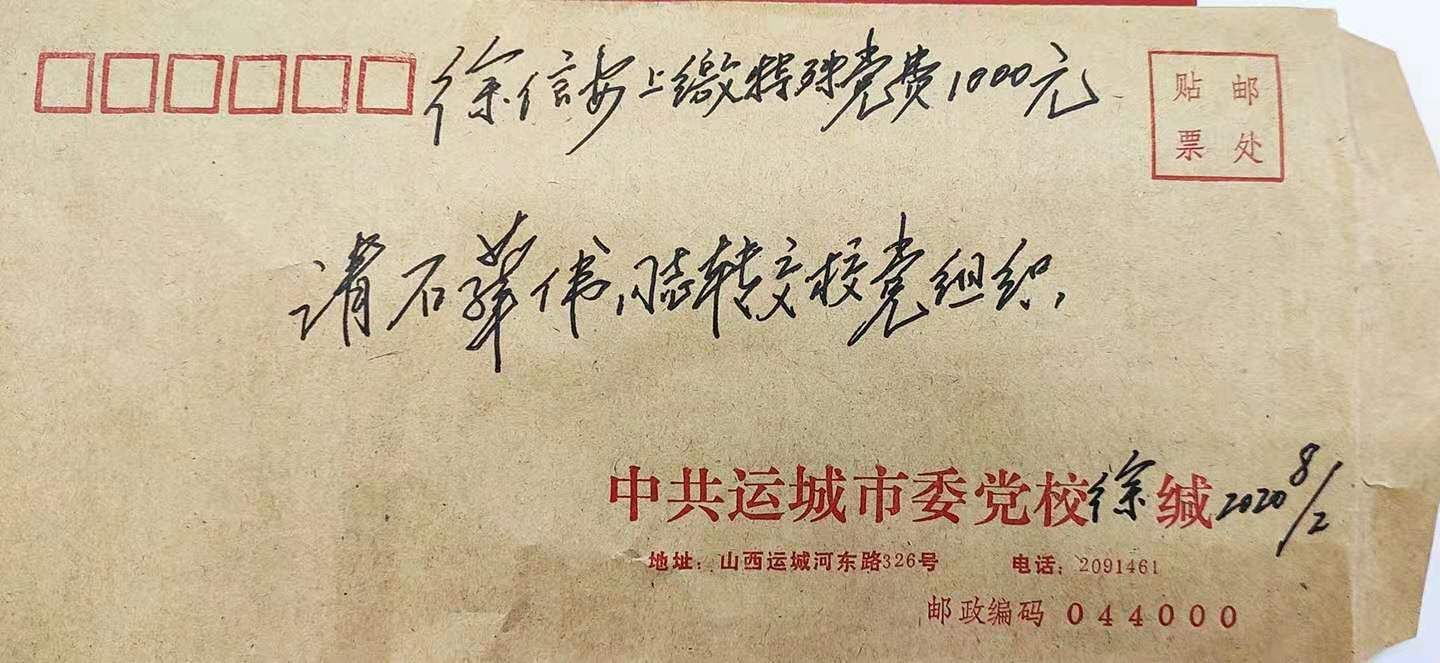 徐信安上缴特殊党费1000元
贴邮
票处
请石华伟同志转交校党组织,
中共运城市委党校徐缄2020 8/2
地址:山西运城河东路326号 电话:2091461
邮政编码 044000